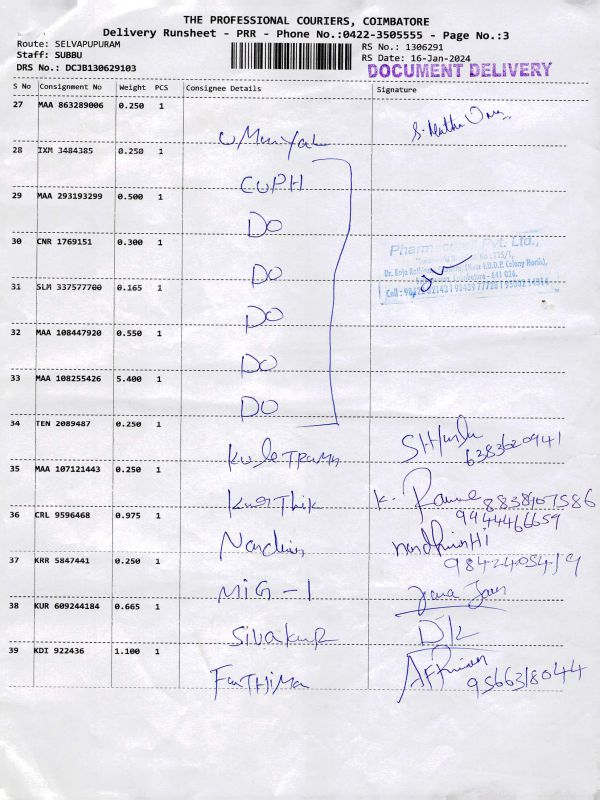 THE PROFESSIONAL COURIERS, COIMBATORE
Delivery Runsheet - PRR - Phone No.:0422-3505555 - Page No.:3
Route: SELVAPUPURAM
Staff: SUBBU
DRS No.: DCJB130629103
RS No.: 1306291
RS Date: 16-Jan-2024
DOCUMENT DELIVERY
S No Consignment No Weight PCS Consignee Details Signature
27 MAA 863289006 0.250 1
28 IXM 3484385 0.250 1
CUPH
29 MAA 293193299 0.500 1
DO
30 CNR 1769151 0.300 1
Pvt. Ltd.,
DO
31 SLM 337577700 0.165 1
DO
32 MAA 108447920 0.550 1
DO
33 MAA 108255426 5.400 1
DO
34 TEN 2089487 0.250 1
35 MAA 107121443 0.250 1
Karthik K.
9944466659
36 CRL 9596468 0.975 1
nandhinHi
37 KRR 5847441 0.250 1
MIG - 1
38 KUR 609244184 0.665 1
Sivakur
39 KDI 922436 1.100 1
FaTHiMa 9566318044